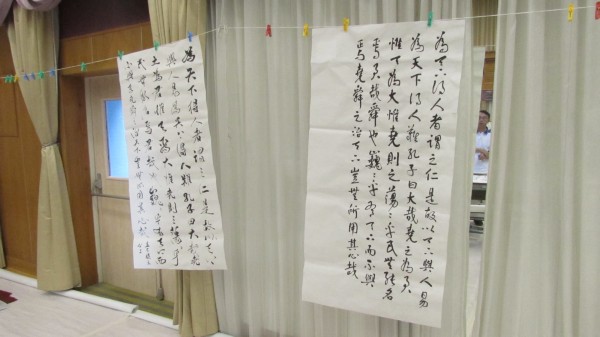 為天下得人者謂之仁是故以天下與人易
為天下得人難孔子曰大哉堯之為君
惟天為大惟堯則之蕩〻乎民無能名
焉君哉舜也巍〻乎有天下而不與
焉堯舜之治天下豈無所用其心哉
為天下得人者謂之仁是故以天下
與人易為天下得人難孔子曰大哉堯
之為君惟天為大惟堯則之蕩〻乎
民無能名焉君哉舜也巍〻乎有天下而
不與焉堯舜之治天下豈無所用其心哉